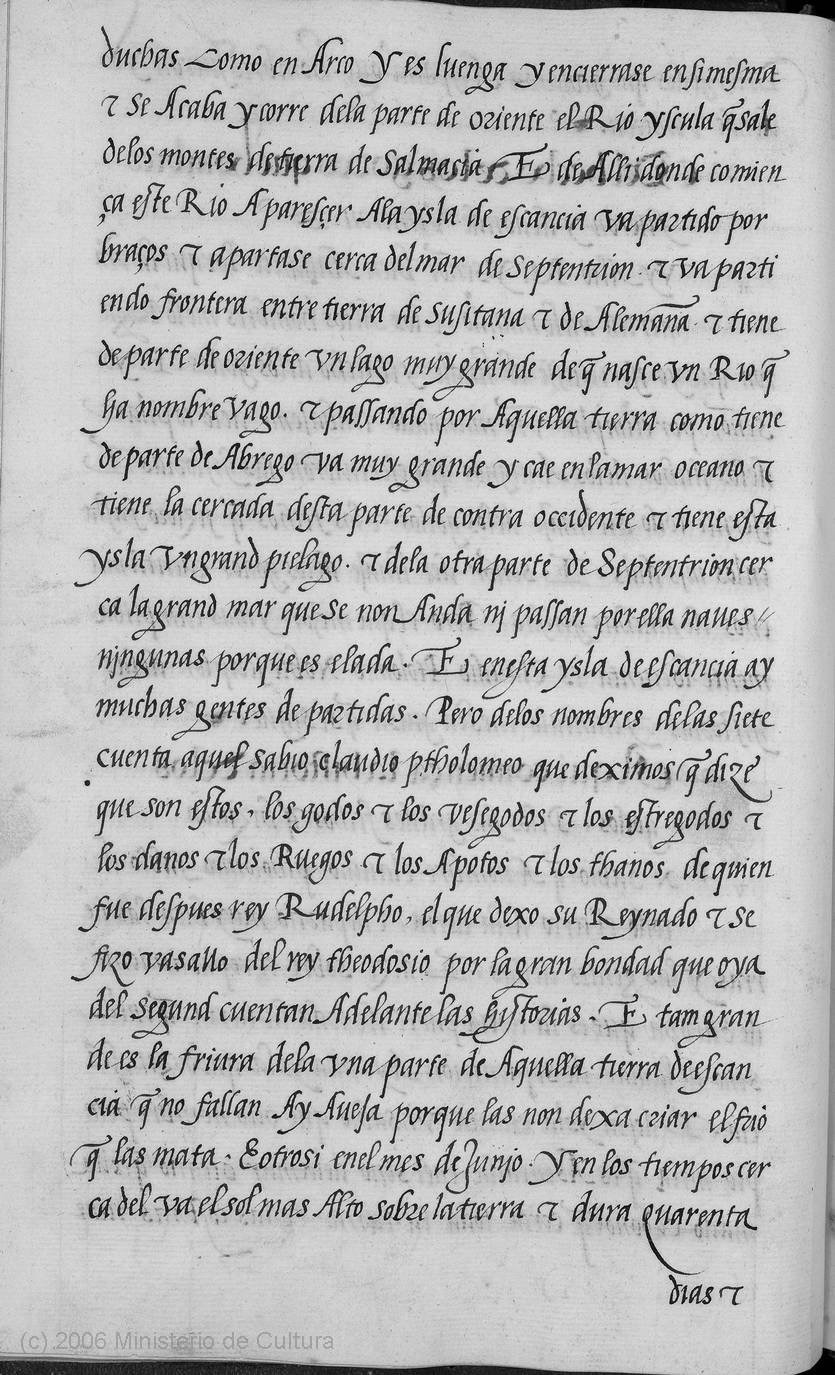 duchas Como en Arco Y es luenga y encierrase en si mesma
τ se Acaba y corre dela parte de oriente el Rio yscula q̃ sale
delos montes de tierra de Salmacia. E de Alli donde comien
ça este Rio A paresçer Ala ysla de escancia va partido por
braços τ apartase cerca del mar de Septentrion. τ va parti
endo frontera entre tierra de susitana τ de Alemaña. τ tiene
de parte de oriente vn lago muy grande de q̃ nasce vn Rio q̃
ha nombre vago. τ passando por Aquella tierra como tiene
de parte de Abrego va muy grande y cae en la mar oceano τ
tiene la cercada desta parte de contra occidente τ tiene esta
ysla vn grand pielago. τ dela otra parte de Septentrion cer
ca la grand mar que se non Anda nj passan por ella naues //
njngunas porque es elada. E en esta ysla de escancia ay
muchas gentes de partidas. Pero delos nombres delas siete
cuenta aquel sabio claudio ptholomeo que deximos q̃ dize
que son estos, los godos τ los vesegodos τ los estregodos τ
los danos τ los Ruegos τ los Apotos τ los thanos de quien
fue despues rey Rudelpho, el que dexo su Reynado τ se
fizo vasallo del rey theodosio por la gran bondad que oya
del segund cuentan Adelante las historias. E tam gran
de es la friura dela vna parte de Aquella tierra de escan
cia q̃ no fallan Ay Aueja porque las non dexa criar el frio
q̃ las mata. E otrosi en el mes de Junjo. Y en los tiempos cer
ca del va el sol mas Alto sobre la tierra τ dura quarenta
dias τ
(c) 2006 Ministerio de Cultura